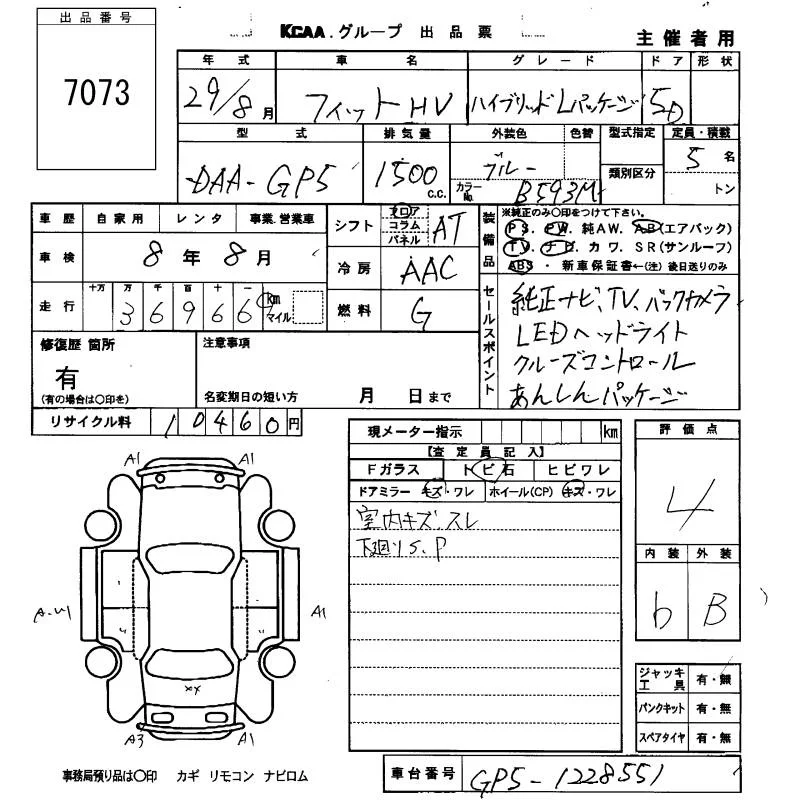 出品番号
7073
KCAA.グループ 出品票
主催者用
年式 車名 グレード ドア 形状
29/8月 フィットHV ハイブリッドLパッケージ 5D
型式 排気量 外装色 色替 型式指定 定員・積載
DAA-GP5 1500 c.c. ブルー 類別区分 5名
カラーNo. B593M トン
車歴 自家用 レンタ 事業.営業車
車検 8年8月
走行 十万 万 千 百 十 一 km マイル
36966
シフト フロア コラム パネル AT
冷房 AAC
燃料 G
装備品
※純正のみ〇印をつけて下さい。
PS. PW. 純AW. AB(エアバック)
TV. ナビ. カワ. SR(サンルーフ)
ABS ・ 新車保証書←(注)後日送りのみ
セールスポイント
純正ナビ、TV、バックカメラ
LEDヘッドライト
クルーズコントロール
あんしんパッケージ
修復歴 箇所
有
(有の場合は〇印を)
注意事項
名変期日の短い方 月 日まで
リサイクル料 10460円
現メーター指示 km
【査定員記入】
Fガラス トビ石 ヒビワレ
ドアミラー キズ・ワレ ホイール(CP) キズ・ワレ
室内キズ.スレ
下廻りS.P
評価点
4
内装 外装
b B
A1 A1
A1
A3 A1
ジャッキ工具 有・無
パンクキット 有・無
スペアタイヤ 有・無
事務局預り品は〇印 カギ リモコン ナビロム
車台番号 GP5-1228551